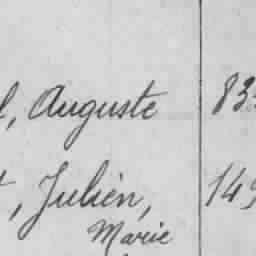 l, Auguste 83
t, Julien, 149
Marie